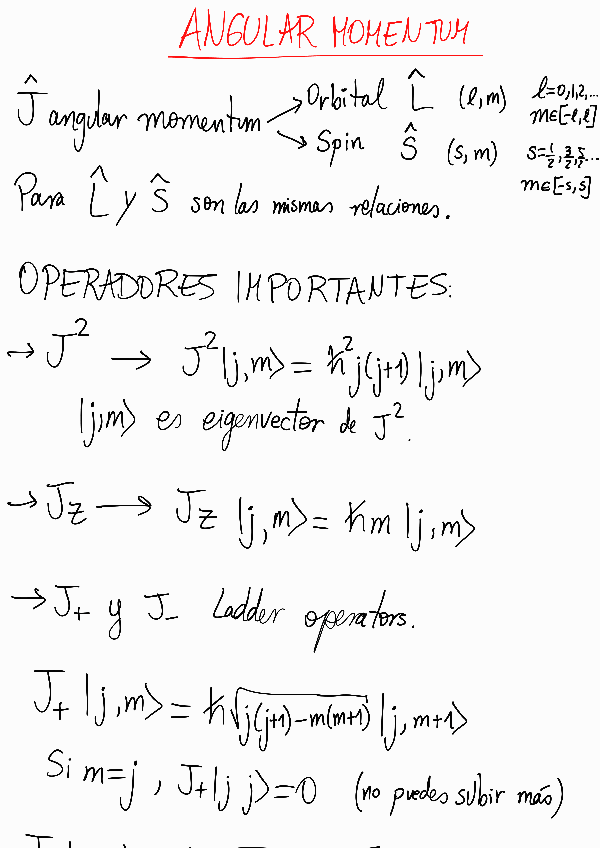 ANGULAR MOMENTUM
Ĵ angular momentum → Orbital L̂ (l,m) l=0,1,2,...
m∈[-l,l]
→ Spin Ŝ (s,m) s=1/2,3/2,5/2...
m∈[-s,s]
Para L̂ y Ŝ son las mismas relaciones.
OPERADORES IMPORTANTES:
→ J² → J²|j,m⟩ = ℏ²j(j+1)|j,m⟩
|j,m⟩ es eigenvector de J².
→ Jz → Jz |j,m⟩ = ℏm |j,m⟩
→ J₊ y J₋ Ladder operators.
J₊ |j,m⟩ = ℏ√(j(j+1)-m(m+1)) |j,m+1⟩
Si m=j , J₊|j j⟩=0 (no puedes subir más)